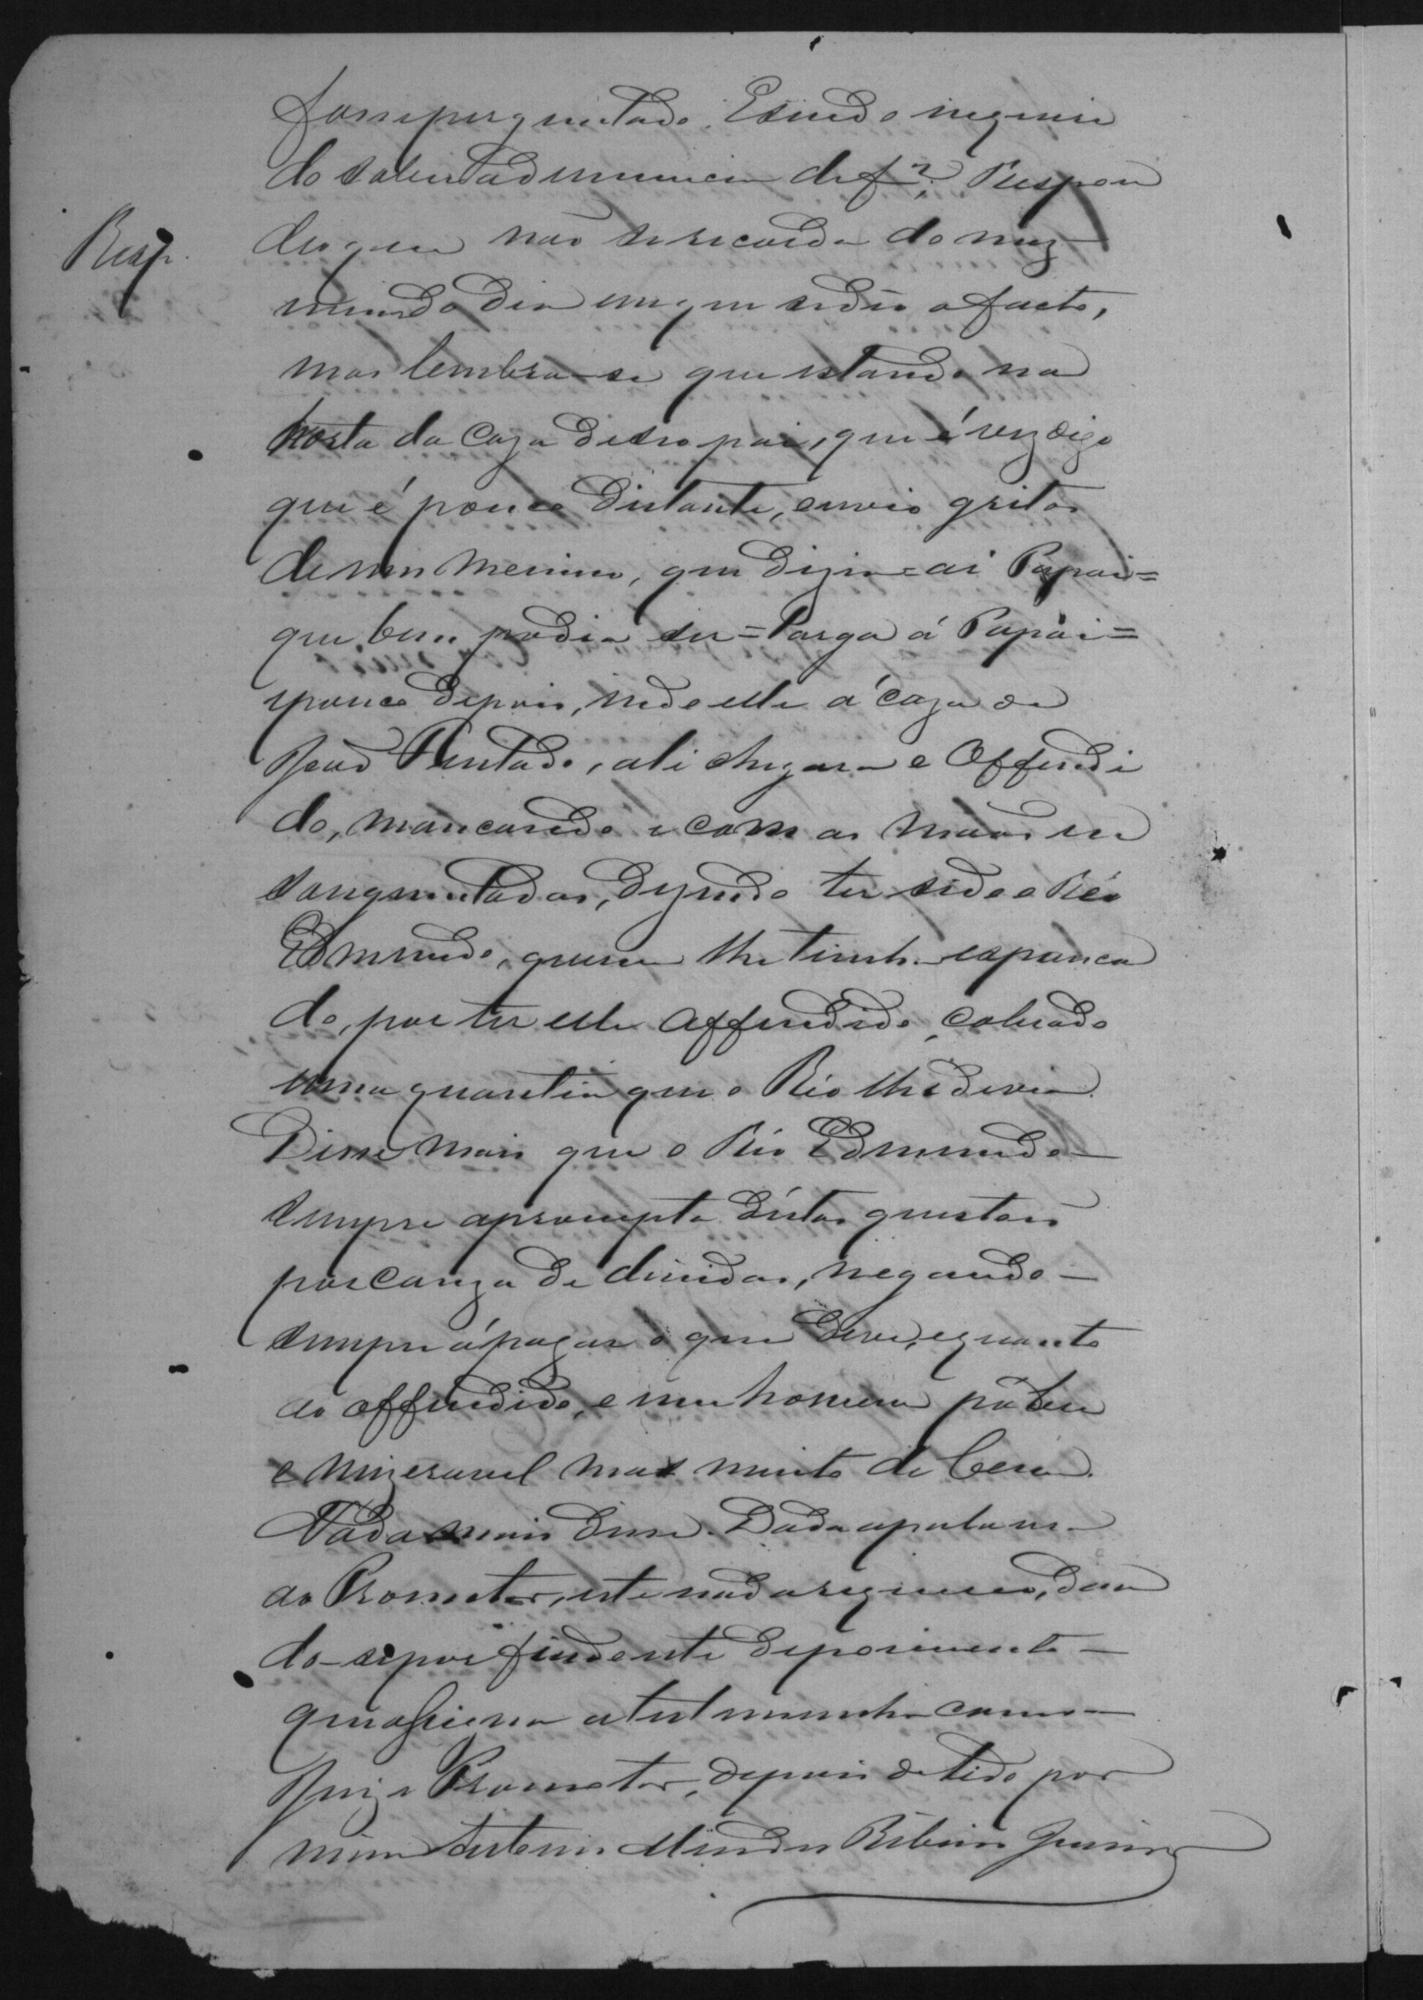 fosse perguntado. E sendo inquiri
do sobre a denuncia de f.² Respon
Resp.
deo que não se recorda do mez
nem do dia em que se deo o facto,
mas lembra-se que estando na
porta da caza de seo pai, que é vez digo
que é pouco distante, ouvio gritos
de um menino, que dizia = ai Papai =
que bem podia ser = larga á Papai =
e pouco depois, indo elle á caza de
João Furtado, ali chegara o Offendi
do, mancando e com as mãos en
sanguentadas, dizendo ter sido o Réo
Edmundo, quem lhe tinha espanca
do, por ter elle offendido, cobrado
uma quantia que o Réo lhe devia.
Disse mais que o Réo Edmundo
sempre aprompta déstas questões
por cauza de dividas, negando
sempre á pagar o que deve, e quanto
ao offendido, é um homem pobre
e mizeravel mas muito de bem.
Nada mais disse. Dada a palavra
ao Promotor, este nada requereo, dan
do-se por findo este depoimento
que assigna a testemunha com o
Juiz e Promotor, depois de lido por
mim Antonio Mendes Ribeiro Junior